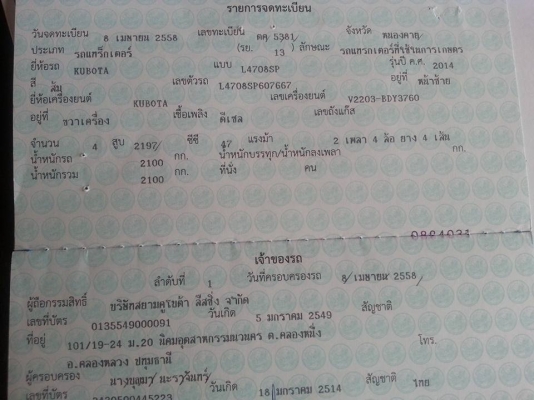 รายการจดทะเบียน
วันจดทะเบียน 8 เมษายน 2558 เลขทะเบียน ตค 5381 จังหวัด หนองคาย
ประเภท รถแทร็กเตอร์ (รย. 13) ลักษณะ รถแทรกเตอร์ที่ใช้ในการเกษตร
ยี่ห้อรถ KUBOTA แบบ L4708SP รุ่นปี ค.ศ. 2014
สี ส้ม เลขตัวรถ L4708SP607667 อยู่ที่ หน้าซ้าย
ยี่ห้อเครื่องยนต์ KUBOTA เลขเครื่องยนต์ V2203-BDY3760
อยู่ที่ ขวาเครื่อง เชื้อเพลิง ดีเซล เลขถังแก๊ส
จำนวน 4 สูบ 2197 ซีซี 47 แรงม้า 2 เพลา 4 ล้อ ยาง 4 เส้น
น้ำหนักรถ 2100 กก. น้ำหนักบรรทุก/น้ำหนักลงเพลา กก.
น้ำหนักรวม 2100 กก. ที่นั่ง คน
เจ้าของรถ
ลำดับที่ 1 วันที่ครอบครองรถ 8 เมษายน 2558
ผู้ถือกรรมสิทธิ์ บริษัทสยามคูโบต้า ลีสซิ่ง จำกัด
เลขที่บัตร 0135549000091 วันเกิด 5 มกราคม 2549 สัญชาติ
ที่อยู่ 101/19-24 ม.20 นิคมอุตสาหกรรมนวนคร ต.คลองหนึ่ง
อ.คลองหลวง ปทุมธานี โทร.
ผู้ครอบครอง
เลขที่บัตร วันเกิด 18 มกราคม 2514 สัญชาติ ไทย